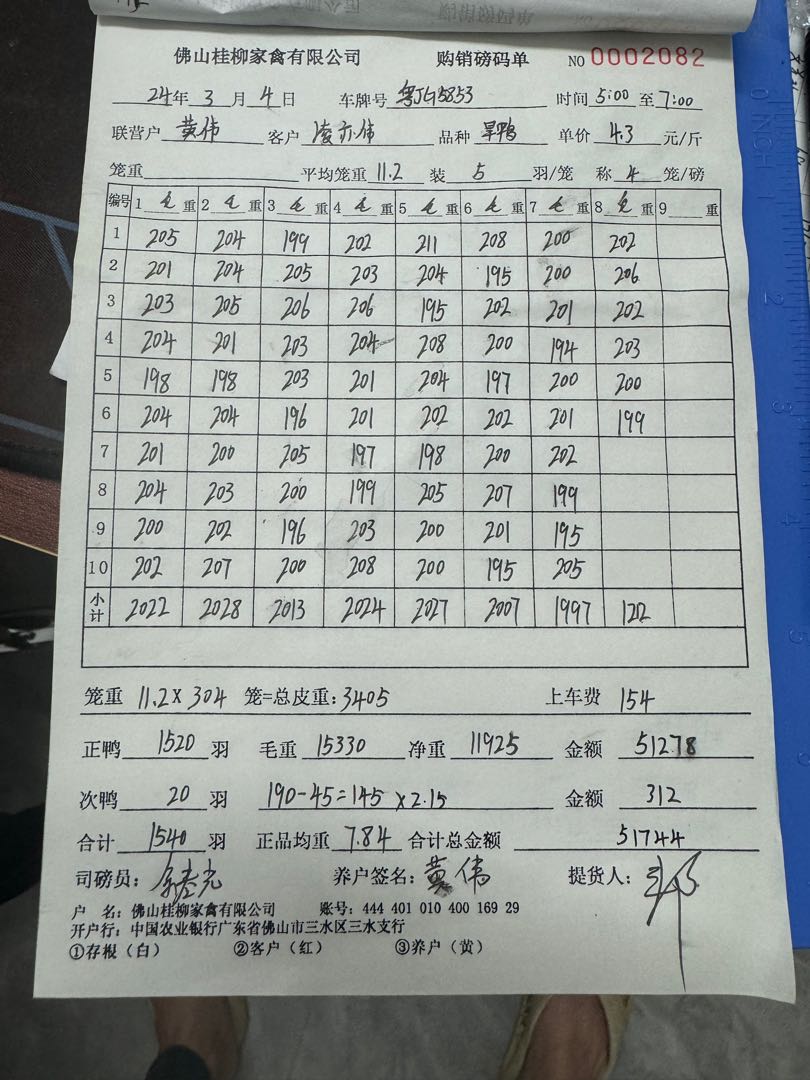 佛山桂柳家禽有限公司 购销磅码单 NO 0002082
24年 3 月 4 日 车牌号 粤JG5853 时间 5:00 至 7:00
联营户 黄伟 客户 凌亦伟 品种 旱鸭 单价 4.3 元/斤
笼重 平均笼重 11.2 装 5 羽/笼 称 4 笼/磅
编号 1 毛 重 2 毛 重 3 毛 重 4 毛 重 5 毛 重 6 毛 重 7 毛 重 8 毛 重 9 重
1 205 204 199 202 211 208 200 202
2 201 204 205 203 204 195 200 206
3 203 205 206 206 195 202 201 202
4 204 201 203 204 208 200 194 203
5 198 198 203 201 204 197 200 200
6 204 204 196 201 202 202 201 199
7 201 200 205 197 198 200 202
8 204 203 200 199 205 207 199
9 200 202 196 203 200 201 195
10 202 207 200 208 200 195 205
小计 2022 2028 2013 2024 2027 2007 1997 1212
笼重 11.2 X 304 笼=总皮重: 3405 上车费 154
正鸭 1520 羽 毛重 15330 净重 11925 金额 51278
次鸭 20 羽 190-45=145 x 2.15 金额 312
合计 1540 羽 正品均重 7.84 合计总金额 51744
司磅员: 养户签名: 黄伟 提货人:
户 名: 佛山桂柳家禽有限公司 账号: 444 401 010 400 169 29
开户行: 中国农业银行广东省佛山市三水区三水支行
①存根（白） ②客户（红） ③养户（黄）